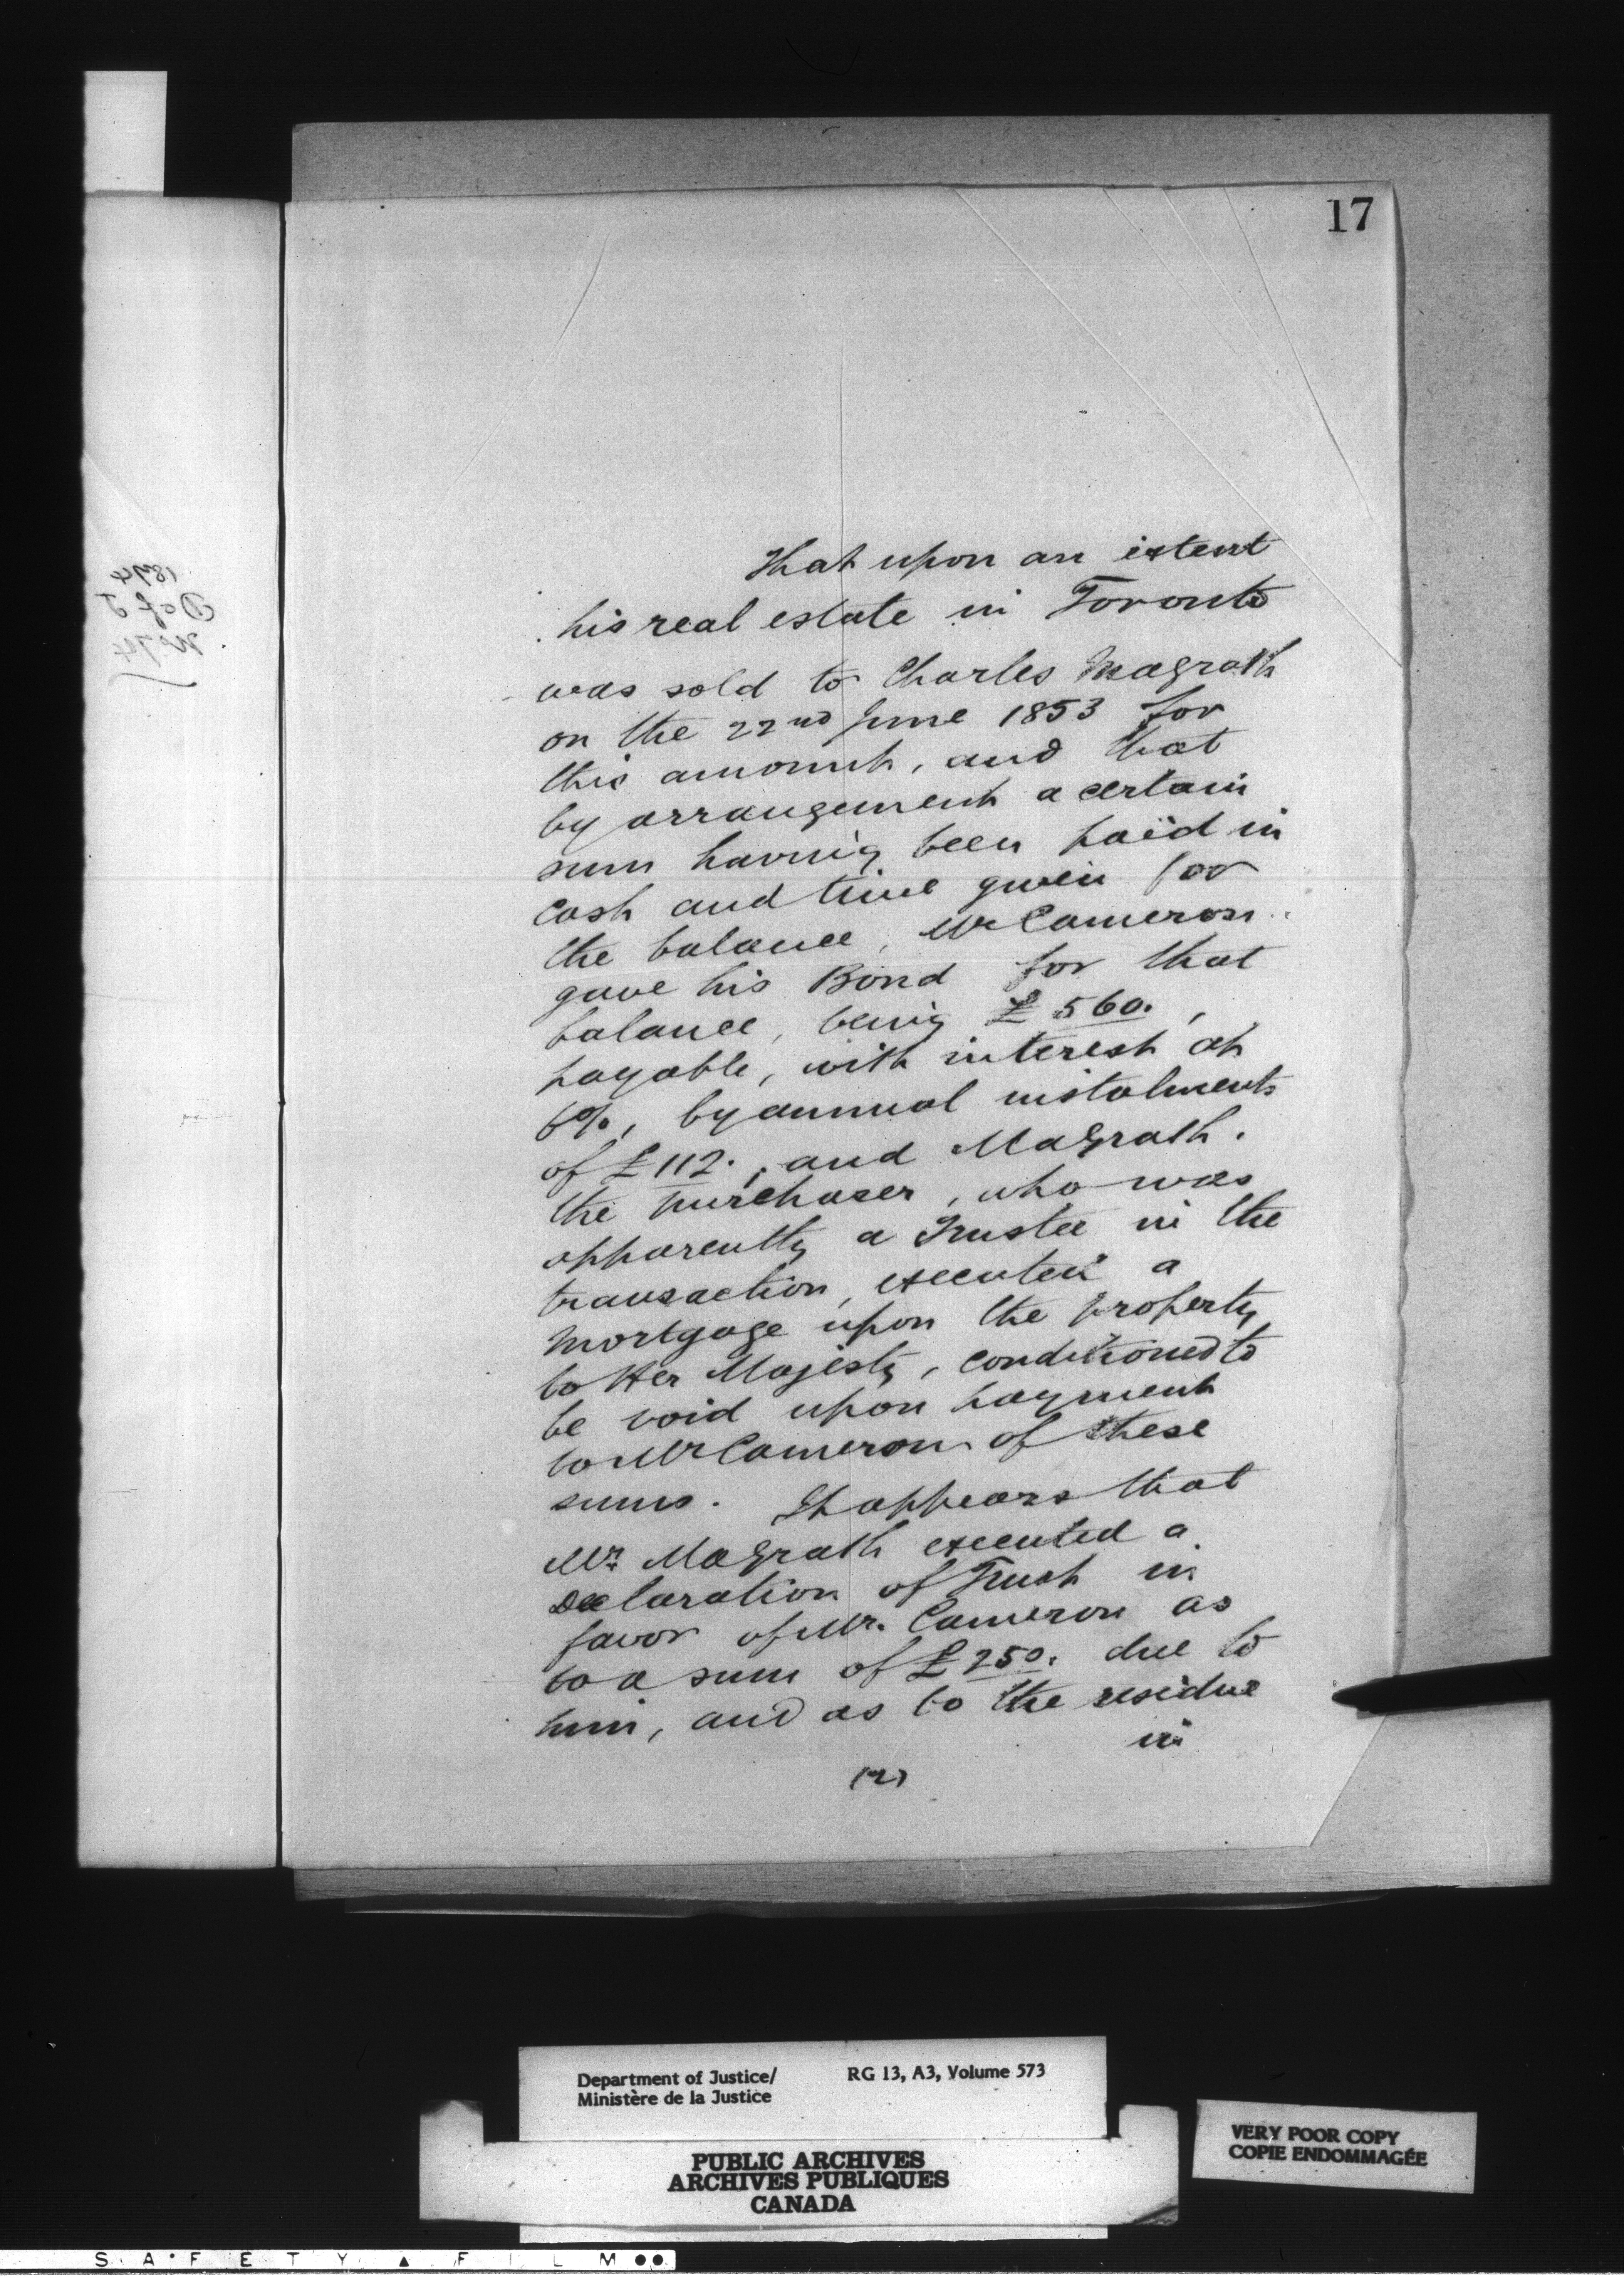 17
That upon an extent
his real estate in Toronto
was sold to Charles Magrath
on the 22nd June 1853 for
this amount, and that
by arrangement a certain
sum having been paid in
cash and time given for
the balance, Mr Cameron
gave his Bond for that
balance, being £560.,
payable, with interest at
6%, by annual instalments
of £112., and MaGrath.
the purchaser, who was
apparently a Trustee in the
transaction, executed a
mortgage upon the property
to Her Majesty, conditioned to
be void upon payment
to Mr Cameron of these
sums. It appears that
Mr. MaGrath executed a
Declaration of Trust in
favor of Mr. Cameron as
to a sum of £250. due to
him, and as to the residue
in
(2)
1874
D of J
No 74
Department of Justice/
Ministère de la Justice
RG 13, A3, Volume 573
PUBLIC ARCHIVES
ARCHIVES PUBLIQUES
CANADA
VERY POOR COPY
COPIE ENDOMMAGÉE
SAFETY ▲ FILM ●●